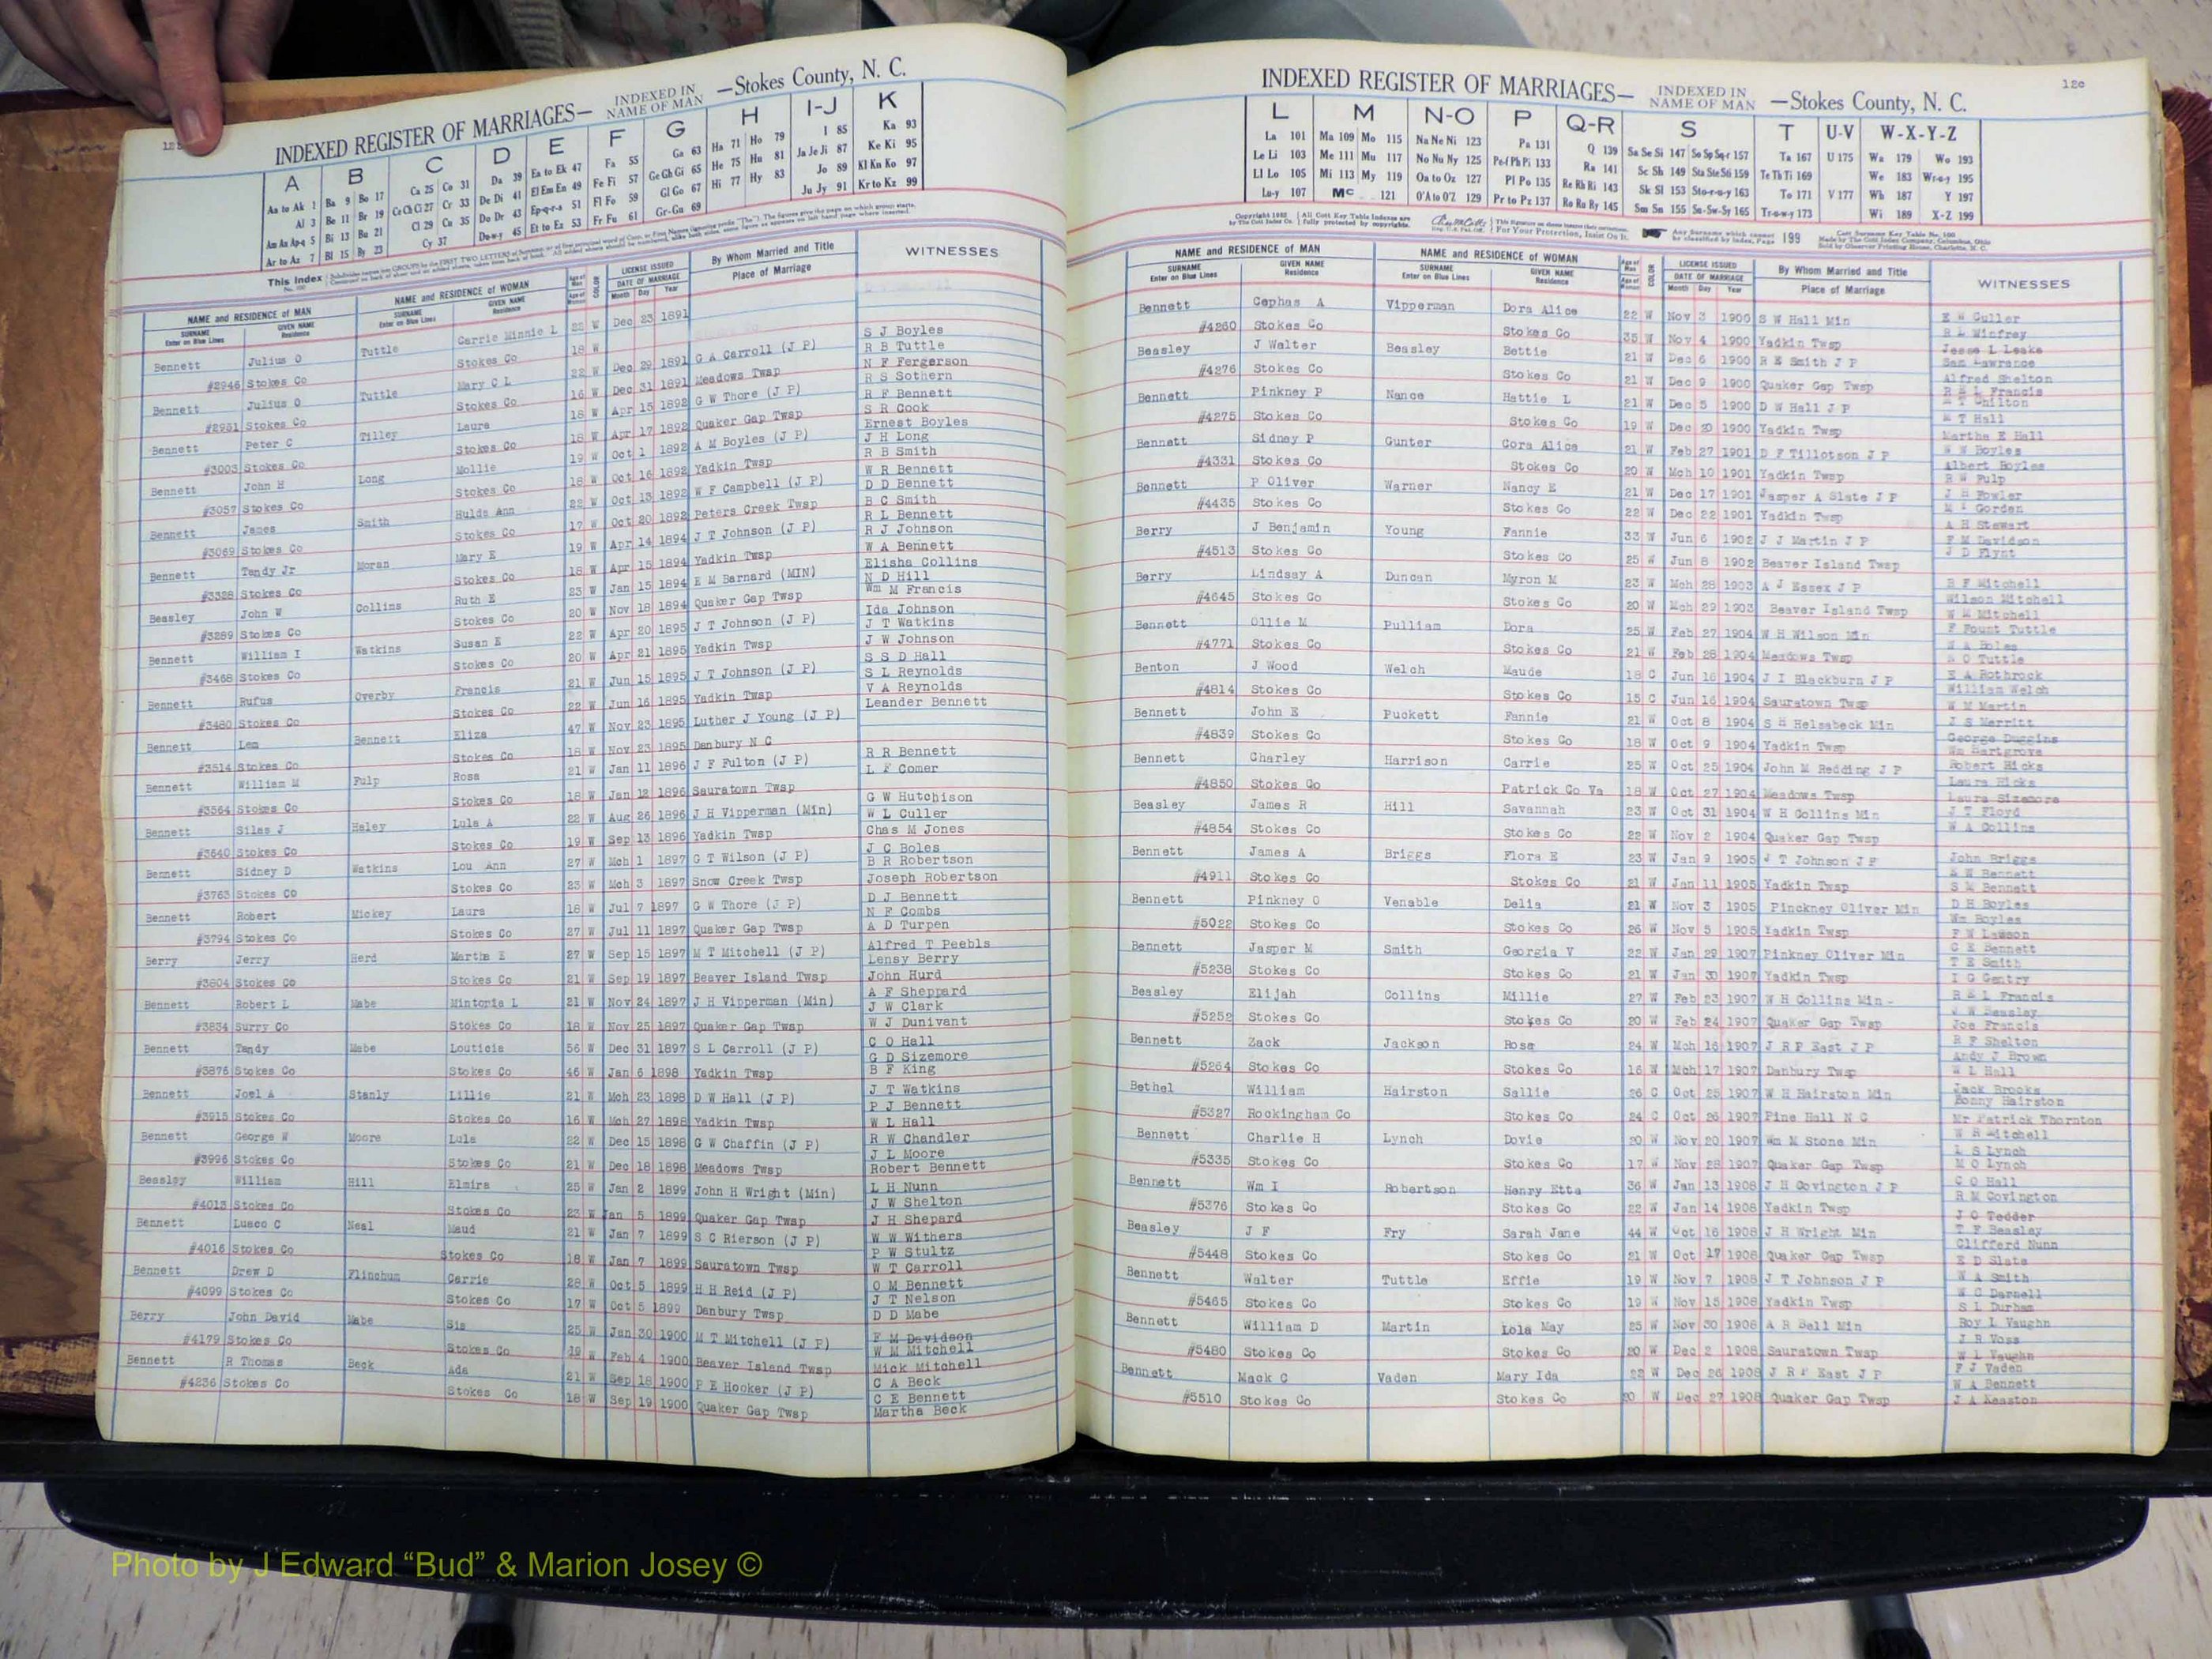 INDEXED REGISTER OF MARRIAGES— INDEXED IN NAME OF MAN —Stokes County, N. C.
A B C D E F G H I-J K
Aa to Ak 1 Ba 9 Bo 17 Ca 25 Co 31 Da 39 Ea to Ek 47 Fa 55 Ga 63 Ha 71 Ho 79 I 85 Ka 93
Al 3 Be 11 Br 19 Ce Ch Ci 27 Cr 33 De Di 41 El Em En 49 Fe Fi 57 Ge Gh Gi 65 He 75 Hu 81 Ja Je Ji 87 Ke Ki 95
Am An Ap-q 5 Bi 13 Bu 21 Cl 29 Cu 35 Do Dr 43 Ep-q-r-s 51 Fl Fo 59 Gl Go 67 Hi 77 Hy 83 Jo 89 Kl Kn Ko 97
Ar to Az 7 Bl 15 By 23 Cy 37 Du-w-y 45 Et to Ez 53 Fr Fu 61 Gr-Gu 69 Ju Jy 91 Kr to Kz 99
NAME and RESIDENCE of MAN NAME and RESIDENCE of WOMAN LICENSE ISSUED By Whom Married and Title WITNESSES
SURNAME Enter on Blue Lines GIVEN NAME Residence SURNAME Enter on Blue Lines GIVEN NAME Residence COLOR DATE OF MARRIAGE Month Day Year Place of Marriage
Bennett Julius O Tuttle Carrie Minnie L 22 W Dec 23 1891
#2946 Stokes Co Stokes Co 18 W
S J Boyles
R B Tuttle
Bennett Julius O Tuttle Mary C L 22 W Dec 29 1891 G A Carroll (J P) N F Fergerson
#2951 Stokes Co Stokes Co 16 W Dec 31 1891 Meadows Twsp R S Sothern
Bennett Peter C Tilley Laura 18 W Apr 15 1892 G W Thore (J P) R F Bennett
#3003 Stokes Co Stokes Co 18 W Apr 17 1892 Quaker Gap Twsp S R Cook
Ernest Boyles
Bennett John H Long Mollie 19 W Oct 1 1892 A M Boyles (J P) J H Long
#3057 Stokes Co Stokes Co 18 W Oct 16 1892 Yadkin Twsp R B Smith
W R Bennett
Bennett James Smith Hulda Ann 22 W Oct 13 1892 W F Campbell (J P) D D Bennett
#3069 Stokes Co Stokes Co 17 W Oct 20 1892 Peters Creek Twsp B C Smith
R L Bennett
Bennett Tandy Jr Moran Mary E 19 W Apr 14 1894 J T Johnson (J P) R J Johnson
#3328 Stokes Co Stokes Co 18 W Apr 15 1894 Yadkin Twsp W A Bennett
Elisha Collins
Beasley John W Collins Ruth E 23 W Jan 15 1894 E M Barnard (MIN) N D Hill
#3289 Stokes Co Stokes Co 20 W Nov 18 1894 Quaker Gap Twsp Wm M Francis
Ida Johnson
Bennett William I Watkins Susan E 22 W Apr 20 1895 J T Johnson (J P) J T Watkins
#3468 Stokes Co Stokes Co 20 W Apr 21 1895 Yadkin Twsp J W Johnson
S S D Hall
Bennett Rufus Overby Francis 21 W Jun 15 1895 J T Johnson (J P) S L Reynolds
#3480 Stokes Co Stokes Co 22 W Jun 16 1895 Yadkin Twsp V A Reynolds
Bennett Lem Bennett Eliza 47 W Nov 23 1895 Luther J Young (J P) Leander Bennett
#3514 Stokes Co Stokes Co 18 W Nov 23 1895 Danbury N C
Bennett William M Fulp Rosa 21 W Jan 11 1896 J F Fulton (J P) R R Bennett
#3564 Stokes Co Stokes Co 18 W Jan 12 1896 Sauratown Twsp L F Comer
Bennett Silas J Haley Lula A 22 W Aug 26 1896 J H Vipperman (Min) G W Hutchison
#3640 Stokes Co Stokes Co 19 W Sep 13 1896 Yadkin Twsp W L Culler
Chas M Jones
Bennett Sidney D Watkins Lou Ann 27 W Mch 1 1897 G T Wilson (J P) J C Boles
#3763 Stokes Co Stokes Co 23 W Mch 3 1897 Snow Creek Twsp B R Robertson
Joseph Robertson
Bennett Robert Mickey Laura 18 W Jul 7 1897 G W Thore (J P) D J Bennett
#3794 Stokes Co Stokes Co 27 W Jul 11 1897 Quaker Gap Twsp N F Combs
A D Turpen
Berry Jerry Herd Martha E 27 W Sep 15 1897 M T Mitchell (J P) Alfred T Peebls
#3804 Stokes Co Stokes Co 21 W Sep 19 1897 Beaver Island Twsp Lensy Berry
John Hurd
Bennett Robert L Mabe Mintoria L 21 W Nov 24 1897 J H Vipperman (Min) A F Sheppard
#3834 Surry Co Stokes Co 18 W Nov 25 1897 Quaker Gap Twsp J W Clark
W J Dunivant
Bennett Tandy Mabe Louticia 56 W Dec 31 1897 S L Carroll (J P) C O Hall
#3876 Stokes Co Stokes Co 46 W Jan 6 1898 Yadkin Twsp G D Sizemore
B F King
Bennett Joel A Stanly Lillie 21 W Mch 23 1898 D W Hall (J P) J T Watkins
#3915 Stokes Co Stokes Co 16 W Mch 27 1898 Yadkin Twsp P J Bennett
W L Hall
Bennett George W Moore Lula 22 W Dec 15 1898 G W Chaffin (J P) R W Chandler
#3996 Stokes Co Stokes Co 21 W Dec 18 1898 Meadows Twsp J L Moore
Robert Bennett
Beasley William Hill Elmira 25 W Jan 2 1899 John H Wright (Min) L H Nunn
#4013 Stokes Co Stokes Co 23 W Jan 5 1899 Quaker Gap Twsp J W Shelton
J H Shepard
Bennett Lusco C Neal Maud 21 W Jan 7 1899 S C Rierson (J P) W W Withers
#4016 Stokes Co Stokes Co 18 W Jan 7 1899 Sauratown Twsp P W Stultz
W T Carroll
Bennett Drew D Flinchum Carrie 28 W Oct 5 1899 H H Reid (J P) O M Bennett
#4099 Stokes Co Stokes Co 17 W Oct 5 1899 Danbury Twsp J T Nelson
D D Mabe
Berry John David Mabe Sis 25 W Jan 30 1900 M T Mitchell (J P) F M Davidson
#4179 Stokes Co Stokes Co 19 W Feb 4 1900 Beaver Island Twsp W M Mitchell
Mick Mitchell
Bennett R Thomas Beck Ada 21 W Sep 18 1900 P E Hooker (J P) C A Beck
#4236 Stokes Co Stokes Co 18 W Sep 19 1900 Quaker Gap Twsp C E Bennett
Martha Beck
INDEXED REGISTER OF MARRIAGES— INDEXED IN NAME OF MAN —Stokes County, N. C.
L M N-O P Q-R S T U-V W-X-Y-Z
La 101 Ma 109 Mo 115 Na Ne Ni 123 Pa 131 Q 139 Sa Se Si 147 So Sp Sq-r 157 Ta 167 U 175 Wa 179 Wo 193
Le Li 103 Me 111 Mu 117 No Nu Ny 125 Pe-f Ph Pi 133 Ra 141 Sc Sh 149 Sta Ste Sti 159 Te Th Ti 169 We 183 Wr-u-y 195
Ll Lo 105 Mi 113 My 119 Oa to Oz 127 Pl Po 135 Re Rh Ri 143 Sk Sl 153 Sto-r-u-y 163 To 171 V 177 Wh 187 Y 197
Lu-y 107 Mc 121 O'A to O'Z 129 Pr to Pz 137 Ro Ru Ry 145 Sm Sn 155 Su-Sw-Sy 165 Tr-u-w-y 173 Wi 189 X-Z 199
NAME and RESIDENCE of MAN NAME and RESIDENCE of WOMAN LICENSE ISSUED By Whom Married and Title WITNESSES
SURNAME Enter on Blue Lines GIVEN NAME Residence SURNAME Enter on Blue Lines GIVEN NAME Residence COLOR DATE OF MARRIAGE Month Day Year Place of Marriage
Bennett Cephas A Vipperman Dora Alice 22 W Nov 3 1900 S W Hall Min E W Culler
#4260 Stokes Co Stokes Co 35 W Nov 4 1900 Yadkin Twsp R L Winfrey
Jesse L Leake
Beasley J Walter Beasley Bettie 21 W Dec 6 1900 R E Smith J P Sam Lawrence
#4276 Stokes Co Stokes Co 21 W Dec 9 1900 Quaker Gap Twsp Alfred Shelton
R E L Francis
Bennett Pinkney P Nance Hattie L 21 W Dec 5 1900 D W Hall J P M T Chilton
#4275 Stokes Co Stokes Co 19 W Dec 20 1900 Yadkin Twsp M T Hall
Martha E Hall
Bennett Sidney P Gunter Cora Alice 21 W Feb 27 1901 D F Tillotson J P W W Boyles
#4331 Stokes Co Stokes Co 20 W Mch 10 1901 Yadkin Twsp Albert Boyles
R W Pulp
Bennett P Oliver Warner Nancy E 21 W Dec 17 1901 Jasper A Slate J P J H Fowler
#4435 Stokes Co Stokes Co 22 W Dec 22 1901 Yadkin Twsp Gorden
A H Stewart
Berry J Benjamin Young Fannie 33 W Jun 6 1902 J J Martin J P F M Davidson
#4513 Stokes Co Stokes Co 25 W Jun 8 1902 Beaver Island Twsp J D Flynt
Berry Lindsay A Duncan Myron M 23 W Mch 28 1903 A J Essex J P R F Mitchell
#4645 Stokes Co Stokes Co 20 W Mch 29 1903 Beaver Island Twsp Wilson Mitchell
W M Mitchell
Bennett Ollie M Pulliam Dora 25 W Feb 27 1904 W H Wilson Min F Fount Tuttle
#4771 Stokes Co Stokes Co 21 W Feb 28 1904 Meadows Twsp W A Boles
S O Tuttle
Benton J Wood Welch Maude 18 C Jun 16 1904 J I Blackburn J P E A Rothrock
#4814 Stokes Co Stokes Co 15 C Jun 16 1904 Sauratown Twsp William Welch
W M Martin
Bennett John E Puckett Fannie 21 W Oct 8 1904 S H Helsabeck Min J S Merritt
#4839 Stokes Co Stokes Co 18 W Oct 9 1904 Yadkin Twsp George Duggins
Wm Hartgrove
Bennett Charley Harrison Carrie 25 W Oct 25 1904 John M Redding J P Robert Hicks
#4850 Stokes Co Patrick Co Va 18 W Oct 27 1904 Meadows Twsp Laura Hicks
Laura Sizemore
Beasley James R Hill Savannah 23 W Oct 31 1904 W H Collins Min J T Floyd
#4854 Stokes Co Stokes Co 22 W Nov 2 1904 Quaker Gap Twsp W A Collins
Bennett James A Briggs Flora E 23 W Jan 9 1905 J T Johnson J P John Briggs
#4911 Stokes Co Stokes Co 21 W Jan 11 1905 Yadkin Twsp Bennett
S M Bennett
Bennett Pinkney O Venable Delia 21 W Nov 3 1905 Pinckney Oliver Min D H Boyles
#5022 Stokes Co Stokes Co 26 W Nov 5 1905 Yadkin Twsp Wm Boyles
F W Lawson
Bennett Jasper M Smith Georgia V 22 W Jan 29 1907 Pinkney Oliver Min C E Bennett
#5238 Stokes Co Stokes Co 21 W Jan 30 1907 Yadkin Twsp T E Smith
I G Gentry
Beasley Elijah Collins Millie 27 W Feb 23 1907 W H Collins Min - R E L Francis
#5252 Stokes Co Stokes Co 20 W Feb 24 1907 Quaker Gap Twsp J W Beasley
Joe Francis
Bennett Zack Jackson Rosa 24 W Mch 16 1907 J R P East J P R F Shelton
#5264 Stokes Co Stokes Co 16 W Mch 17 1907 Danbury Twsp Andy J Brown
W L Hall
Bethel William Hairston Sallie 26 C Oct 25 1907 W H Hairston Min Jack Brooks
#5327 Rockingham Co Stokes Co 24 C Oct 26 1907 Pine Hall N C Bonny Hairston
Mr Patrick Thornton
Bennett Charlie H Lynch Dovie 20 W Nov 20 1907 Wm M Stone Min W R Mitchell
#5335 Stokes Co Stokes Co 17 W Nov 28 1907 Quaker Gap Twsp L S Lynch
M O Lynch
Bennett Wm I Robertson Henry Etta 36 W Jan 13 1908 J H Covington J P C O Hall
#5376 Stokes Co Stokes Co 22 W Jan 14 1908 Yadkin Twsp R M Covington
J C Tedder
Beasley J F Fry Sarah Jane 44 W Oct 16 1908 J H Wright Min T F Beasley
#5448 Stokes Co Stokes Co 21 W Oct 17 1908 Quaker Gap Twsp Clifferd Nunn
E D Slate
Bennett Walter Tuttle Effie 19 W Nov 7 1908 J T Johnson J P W A Smith
#5465 Stokes Co Stokes Co 19 W Nov 15 1908 Yadkin Twsp W C Darnell
S L Durham
Bennett William D Martin Lola May 25 W Nov 30 1908 A R Bell Min Roy L Vaughn
#5480 Stokes Co Stokes Co 20 W Dec 2 1908 Sauratown Twsp J R Voss
W L Vaughn
Bennett Mack C Vaden Mary Ida 22 W Dec 26 1908 J R P East J P F J Vaden
#5510 Stokes Co Stokes Co 20 W Dec 27 1908 Quaker Gap Twsp W A Bennett
J A Keaston
Photo by J Edward “Bud” & Marion Josey ©